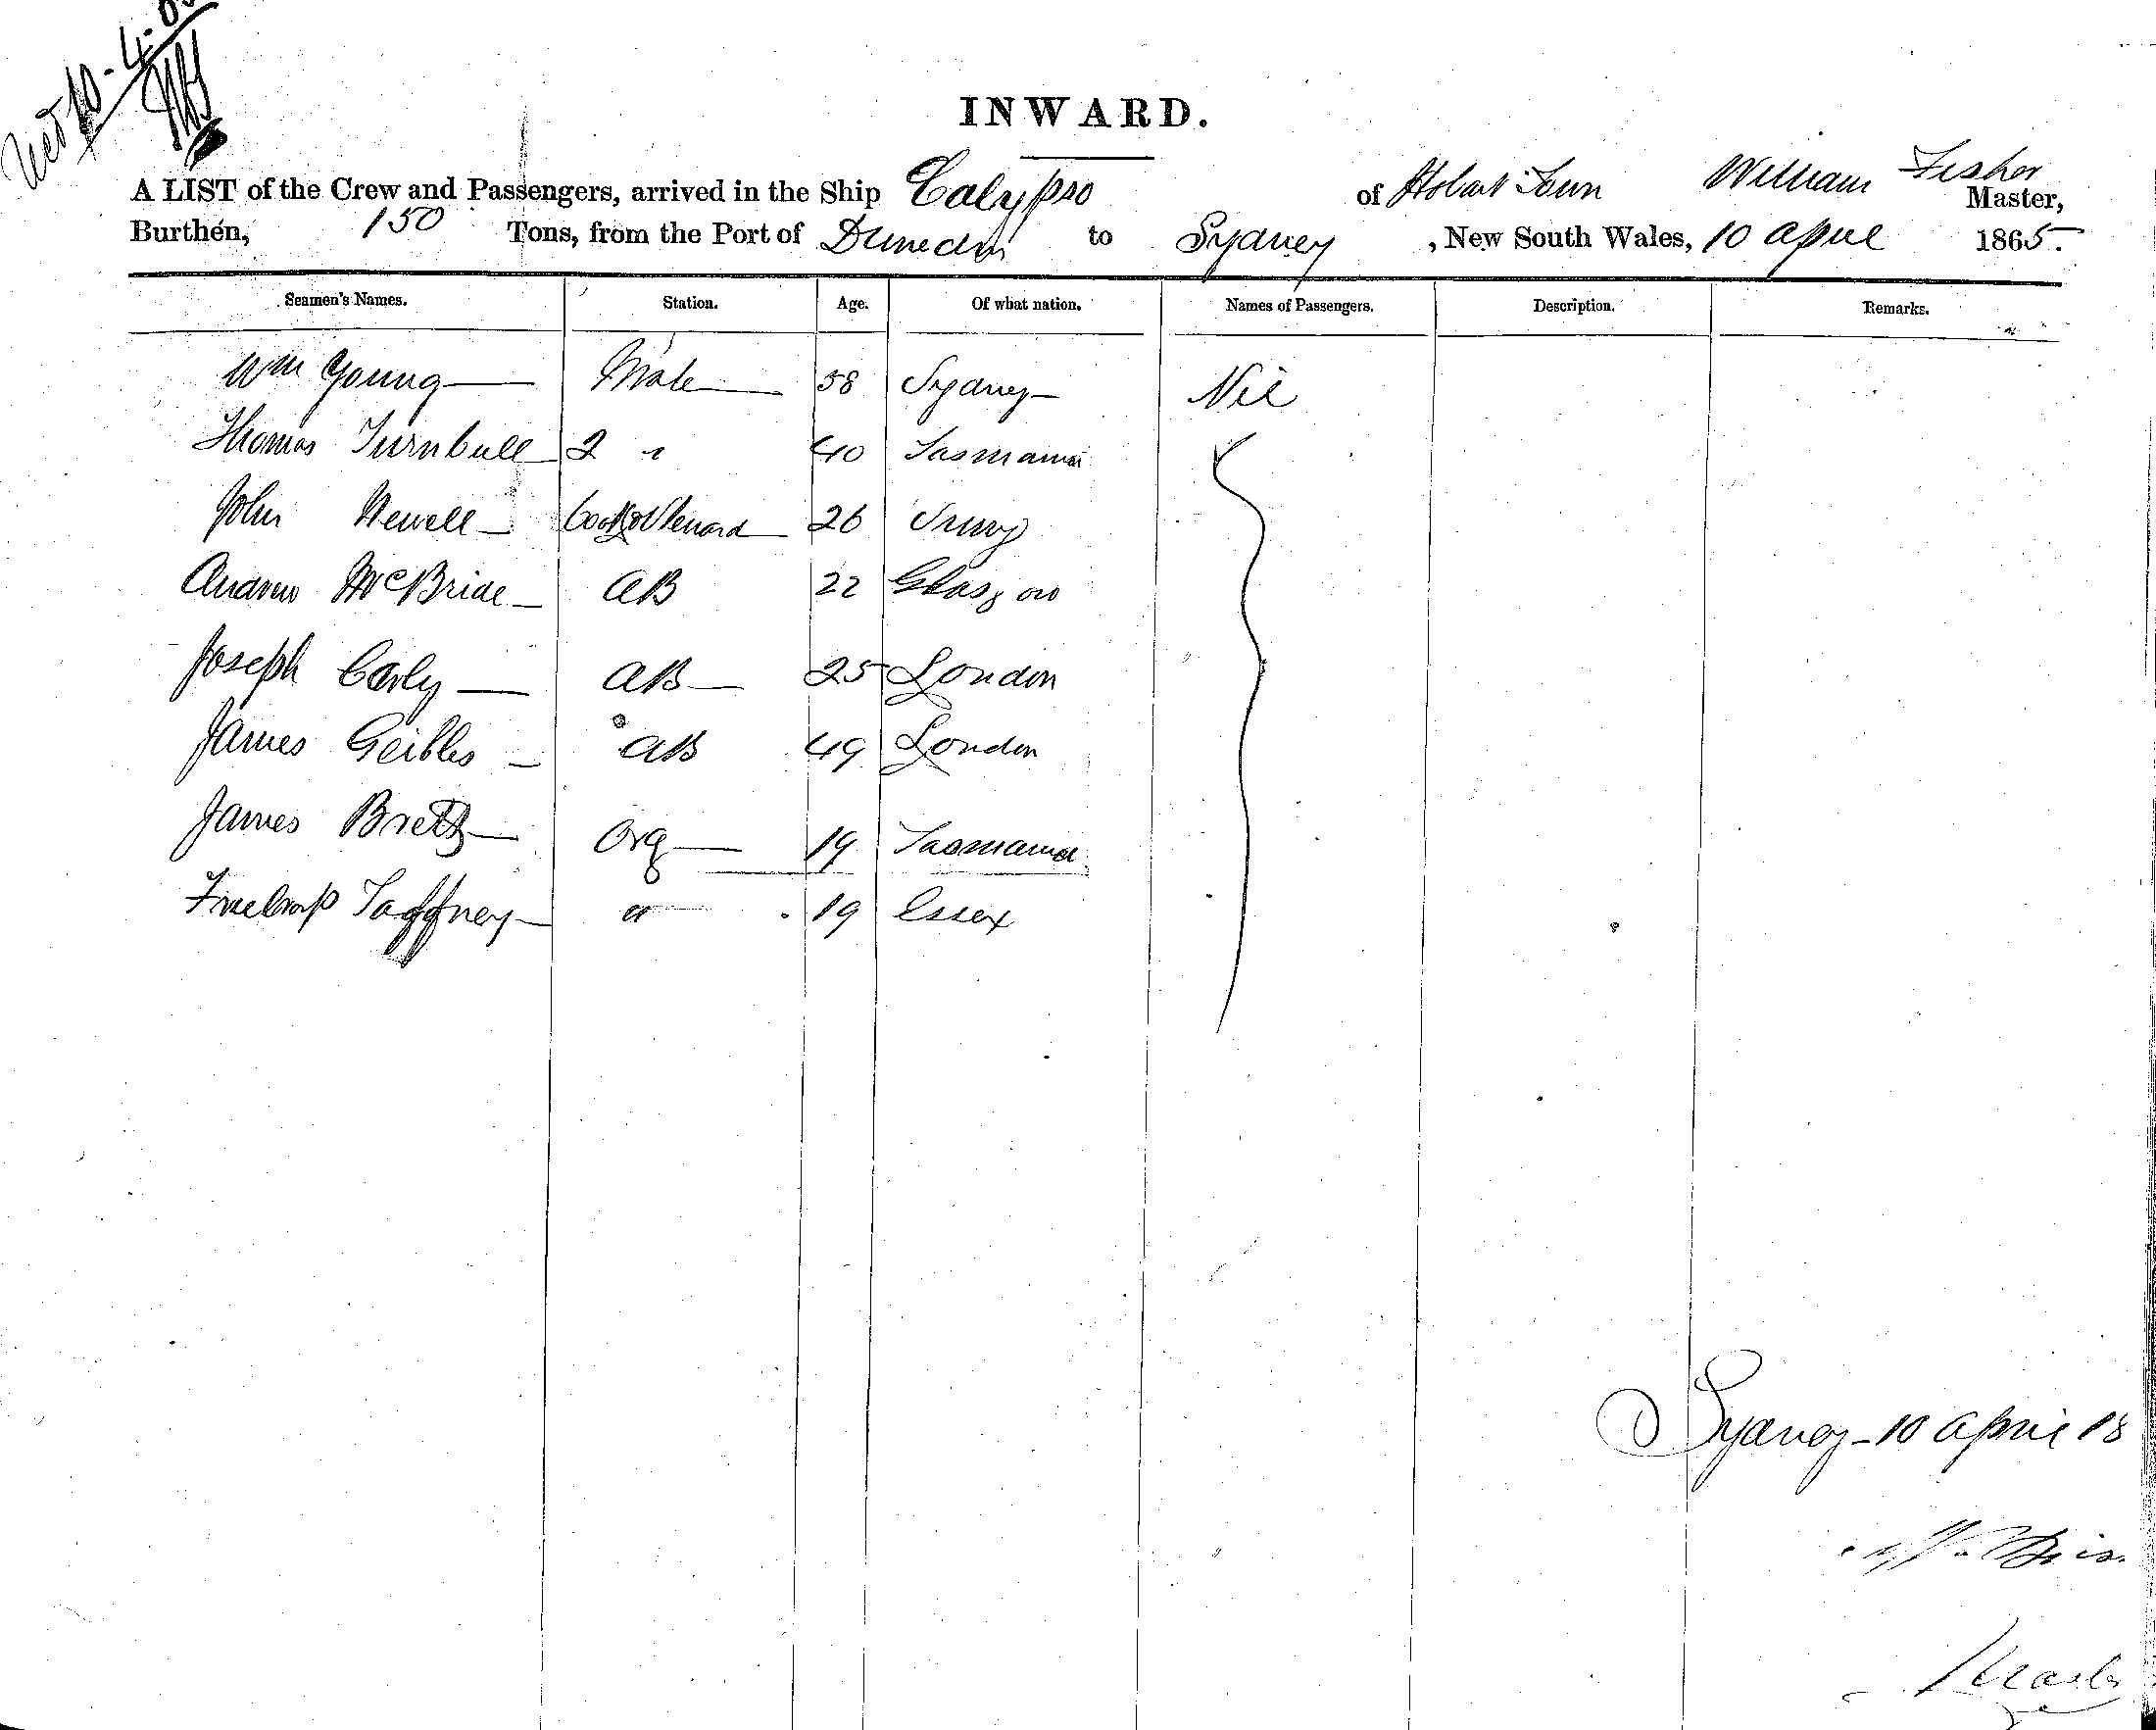 10-4-65
INWARD.
A LIST of the Crew and Passengers, arrived in the Ship Calypso of Hobart Town William Fisher Master,
Burthen, 150 Tons, from the Port of Dunedin to Sydney, New South Wales, 10 April 1865.
Seamen's Names. Station. Age. Of what nation. Names of Passengers. Description. Remarks.
Wm Young Mate 58 Sydney Nil
Thomas Turnbull 2 " 40 Tasmania
John Newell Cook & Steward 26 
Andrew McBride AB 22 Glasgow
Joseph Carly AB 25 London
James Geibles AB 49 London
James Brett 19 Tasmania
Taffney " 19 Essex
Sydney 10 April 18